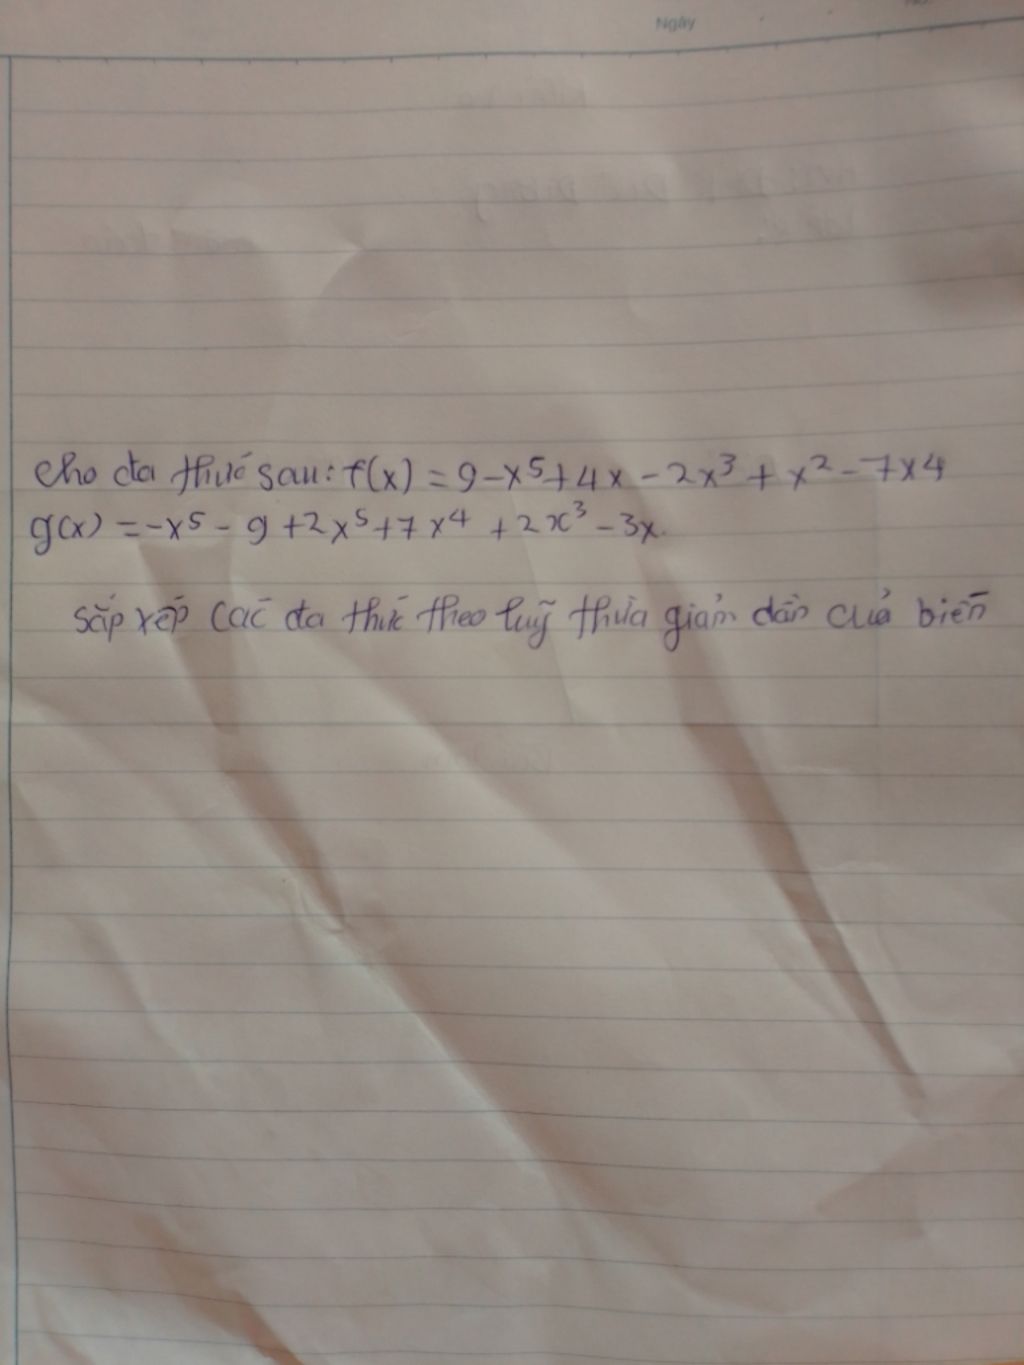 Ngày
cho đa thức sau: f(x) = 9 - x⁵ + 4x - 2x³ + x² - 7x4
g(x) = -x⁵ - 9 + 2x⁵ + 7x⁴ + 2x³ - 3x.
sắp xếp các đa thức theo luỹ thừa giảm dần của biến